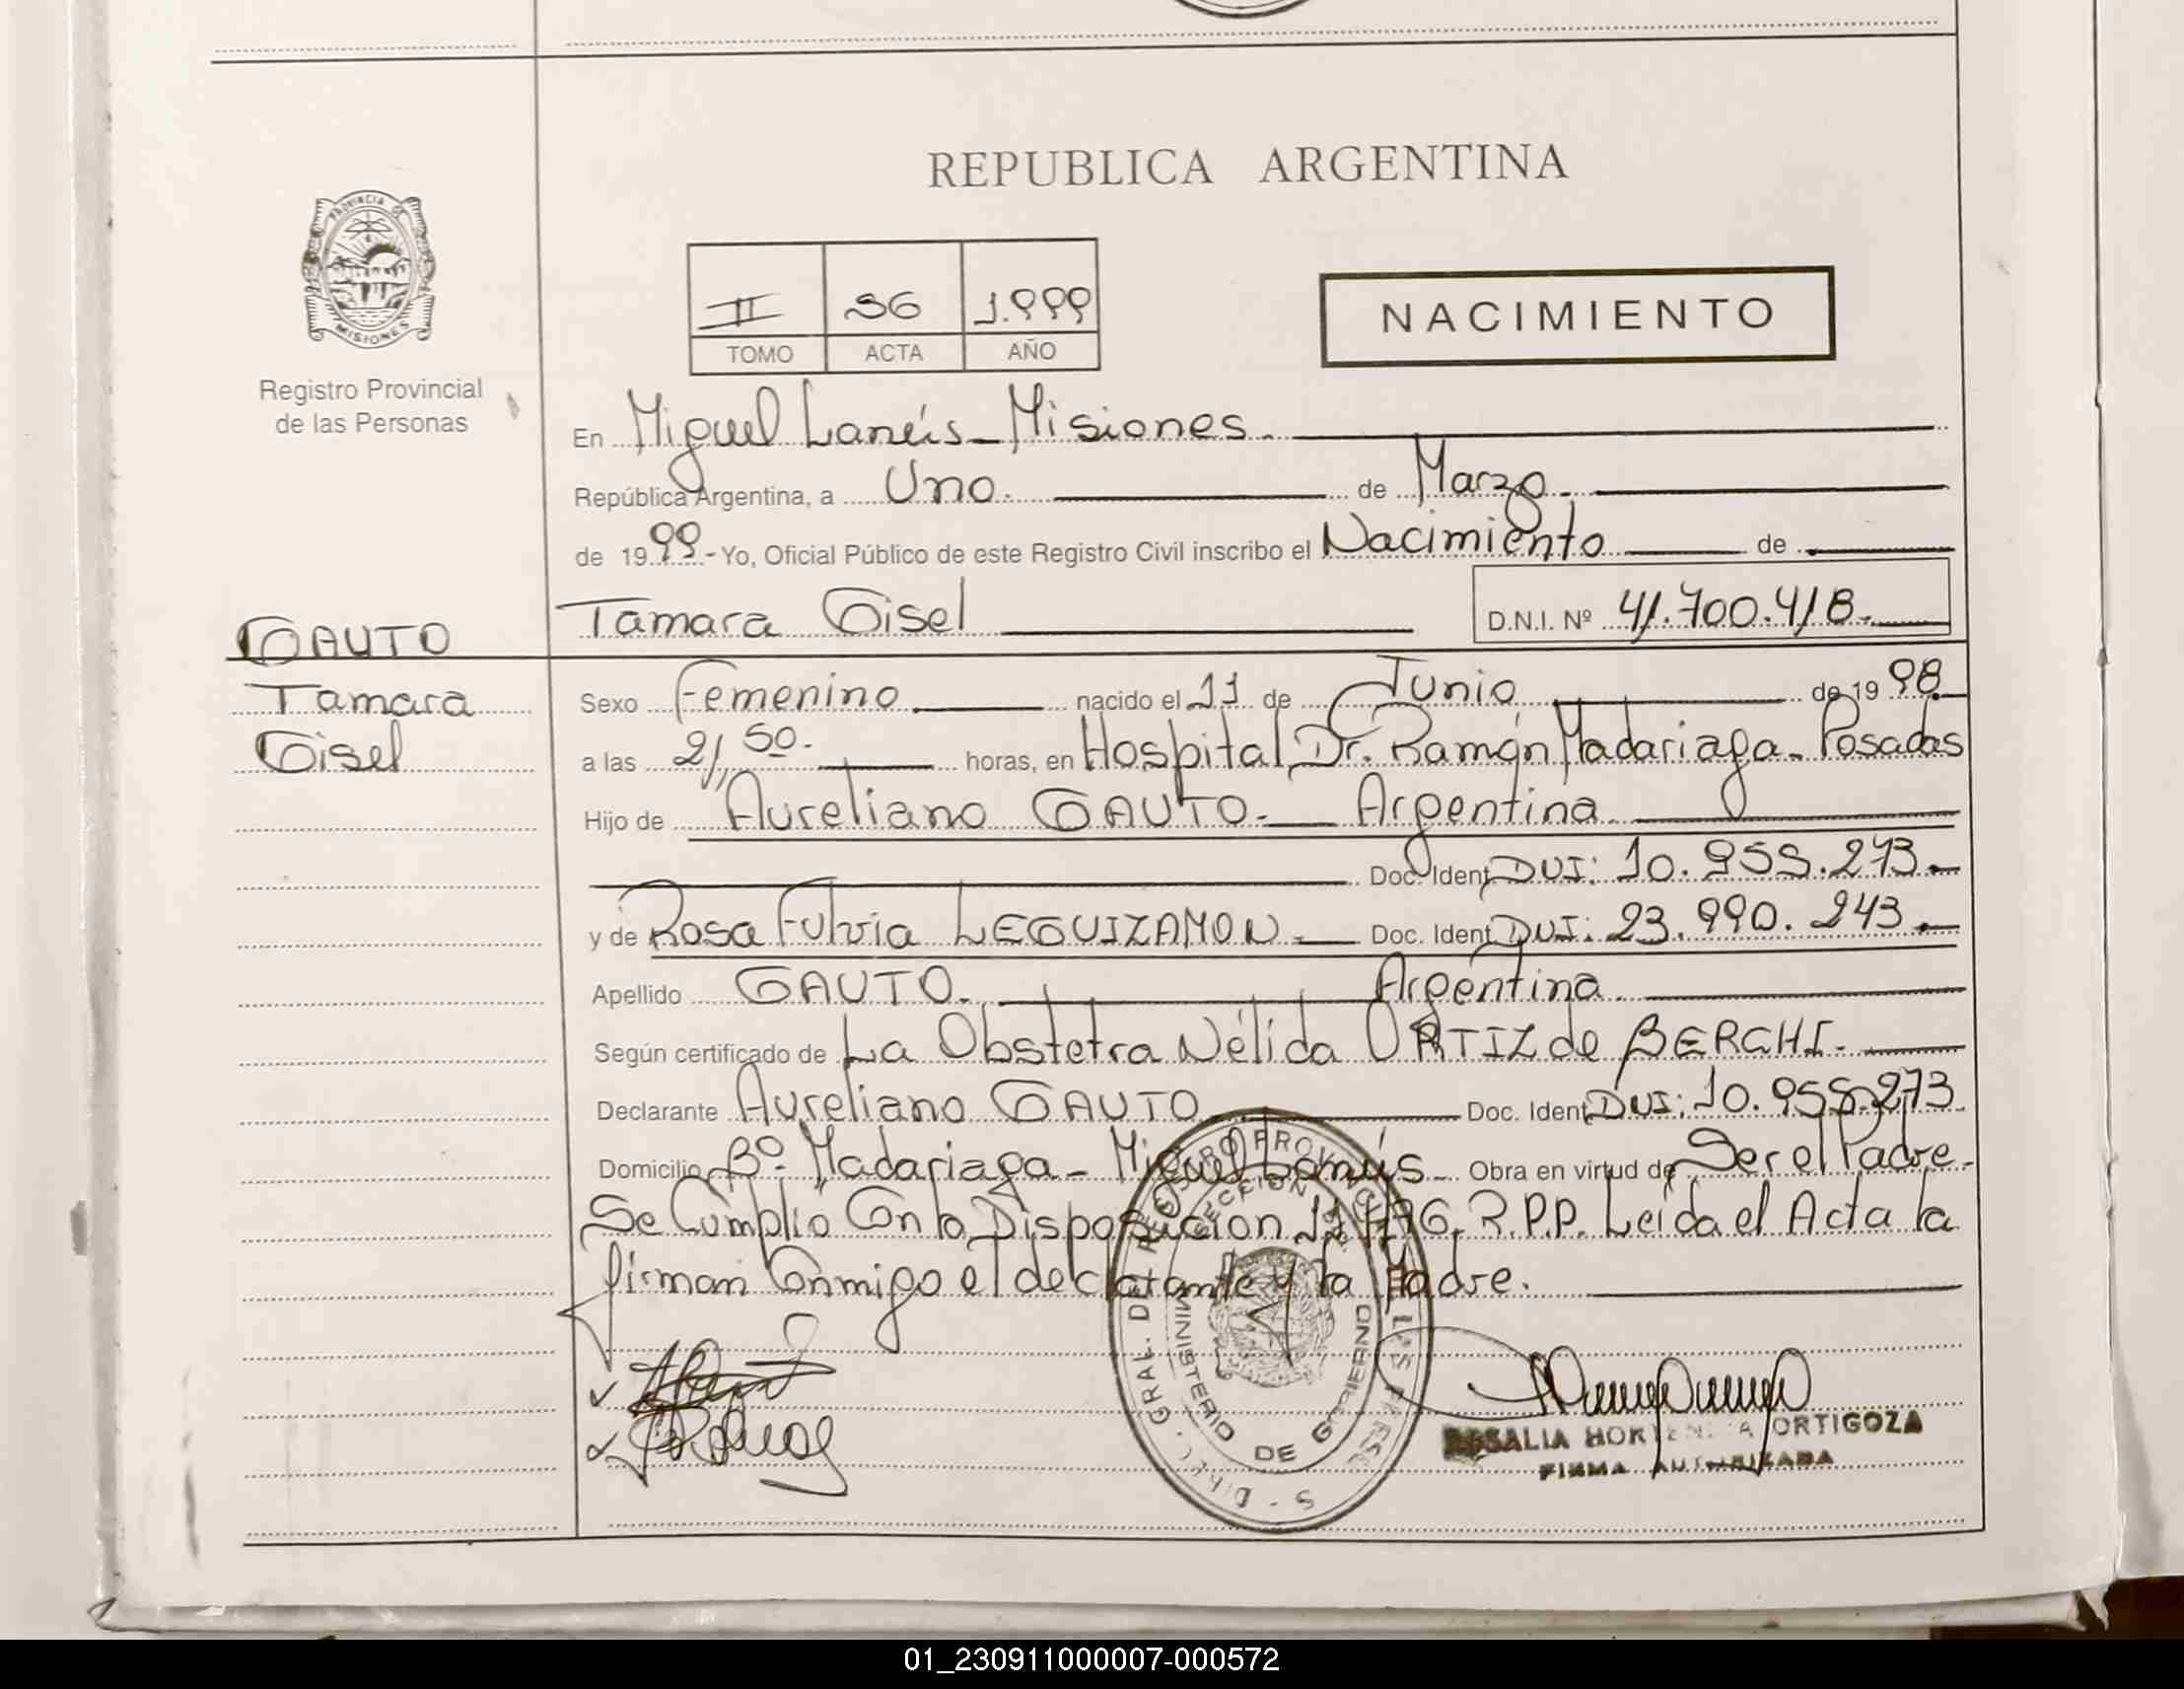 REPUBLICA ARGENTINA
PROVINCIA DE
MISIONES
Registro Provincial
de las Personas
II 96 1.999
TOMO ACTA AÑO
NACIMIENTO
En Miguel Lanús - Misiones.
República Argentina, a Uno. de Marzo.
de 1999.- Yo, Oficial Público de este Registro Civil inscribo el Nacimiento de
Tamara Gisel D.N.I. Nº 41.700.418.
GAUTO
Tamara
Gisel
Sexo Femenino nacido el 11 de Junio de 1998.
a las 21,50. horas, en Hospital Dr. Ramón Madariaga - Posadas
Hijo de Aureliano GAUTO. Argentina.
Doc. Ident DUI: 10.955.273.
y de Rosa Fulvia LEGUIZAMON. Doc. Ident DUI: 23.990.243.
Apellido GAUTO. Argentina.
Según certificado de La Obstetra Nélida ORTIZ de BERGHI.
Declarante Aureliano GAUTO Doc. Ident DUI: 10.955.273
Domicilio Bº. Madariaga - Miguel Lanús - Obra en virtud de Ser el Padre.
Se Cumplio Con la Disposicion 11/96. R.P.P. Leida el Acta la
firman Conmigo el declarante y la Madre.
MINISTERIO DE GOBIERNO
ROSALIA HORTENSIA ORTIGOZA
FIRMA AUTORIZADA
01_230911000007-000572